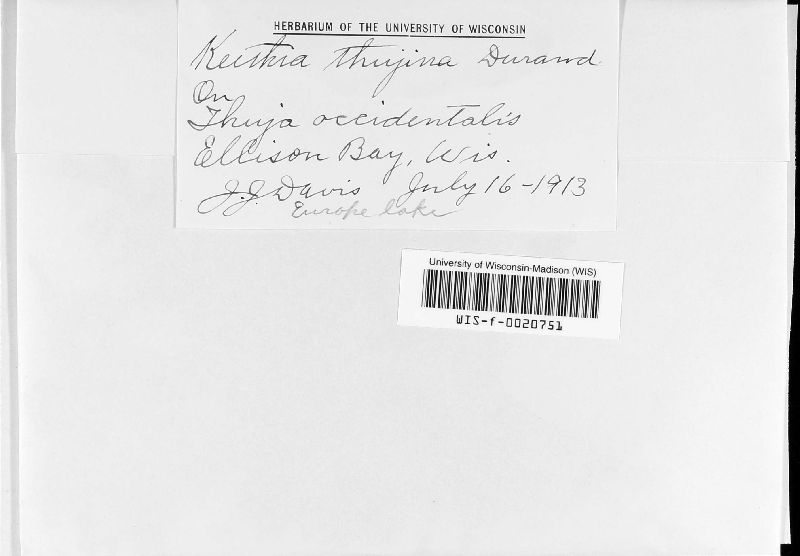 HERBARIUM OF THE UNIVERSITY OF WISCONSIN
Keithia thujina Durand
On
Thuja occidentalis
Ellison Bay, Wis.
J.J. Davis July 16-1913
Europe lake
University of Wisconsin-Madison (WIS)
WIS-f-0020751